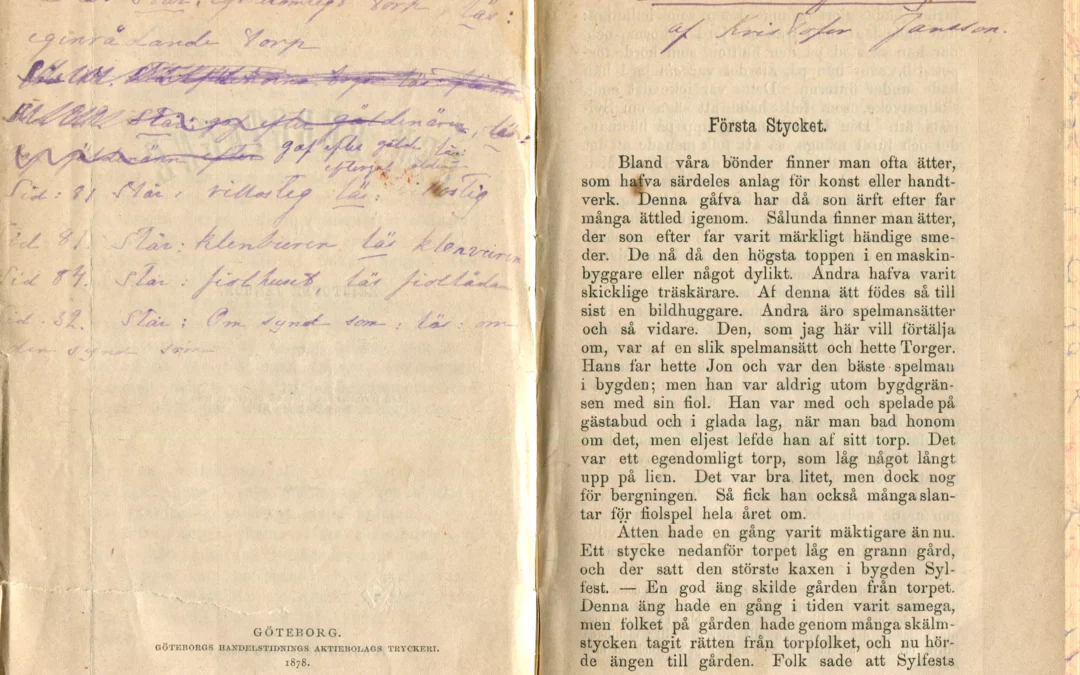 eginrådande torp
Står: gaf efter
gaf efter
Sid: 81 Står: läs:
Sid 81. Står: klenburen läs klenvuren
Sid 84. Står: fiolhuset läs fiollådan
Sid. 32. Står: Om synd som: läs: om
den synd som
GÖTEBORG.
GÖTEBORGS HANDELSTIDNINGS AKTIEBOLAGS TRYCKERI.
1878.
af Kristofer Jansson.
Första Stycket.
Bland våra bönder finner man ofta ätter,
som hafva särdeles anlag för konst eller handt-
verk. Denna gåfva har då son ärft efter far
många ättled igenom. Sålunda finner man ätter,
der son efter far varit märkligt händige sme-
der. De nå då den högsta toppen i en maskin-
byggare eller något dylikt. Andra hafva varit
skicklige träskärare. Af denna ätt födes så till
sist en bildhuggare. Andra äro spelmansätter
och så vidare. Den, som jag här vill förtälja
om, var af en slik spelmansätt och hette Torger.
Hans far hette Jon och var den bäste spelman
i bygden; men han var aldrig utom bygdgrän-
sen med sin fiol. Han var med och spelade på
gästabud och i glada lag, när man bad honom
om det, men eljest lefde han af sitt torp. Det
var ett egendomligt torp, som låg något långt
upp på lien. Det var bra litet, men dock nog
för bergningen. Så fick han också många slan-
tar för fiolspel hela året om.
Ätten hade en gång varit mäktigare än nu.
Ett stycke nedanför torpet låg en grann gård,
och der satt den störste kaxen i bygden Syl-
fest. — En god äng skilde gården från torpet.
Denna äng hade en gång i tiden varit samega,
men folket på gården hade genom många skälm-
stycken tagit rätten från torpfolket, och nu hör-
de ängen till gården. Folk sade att Sylfests